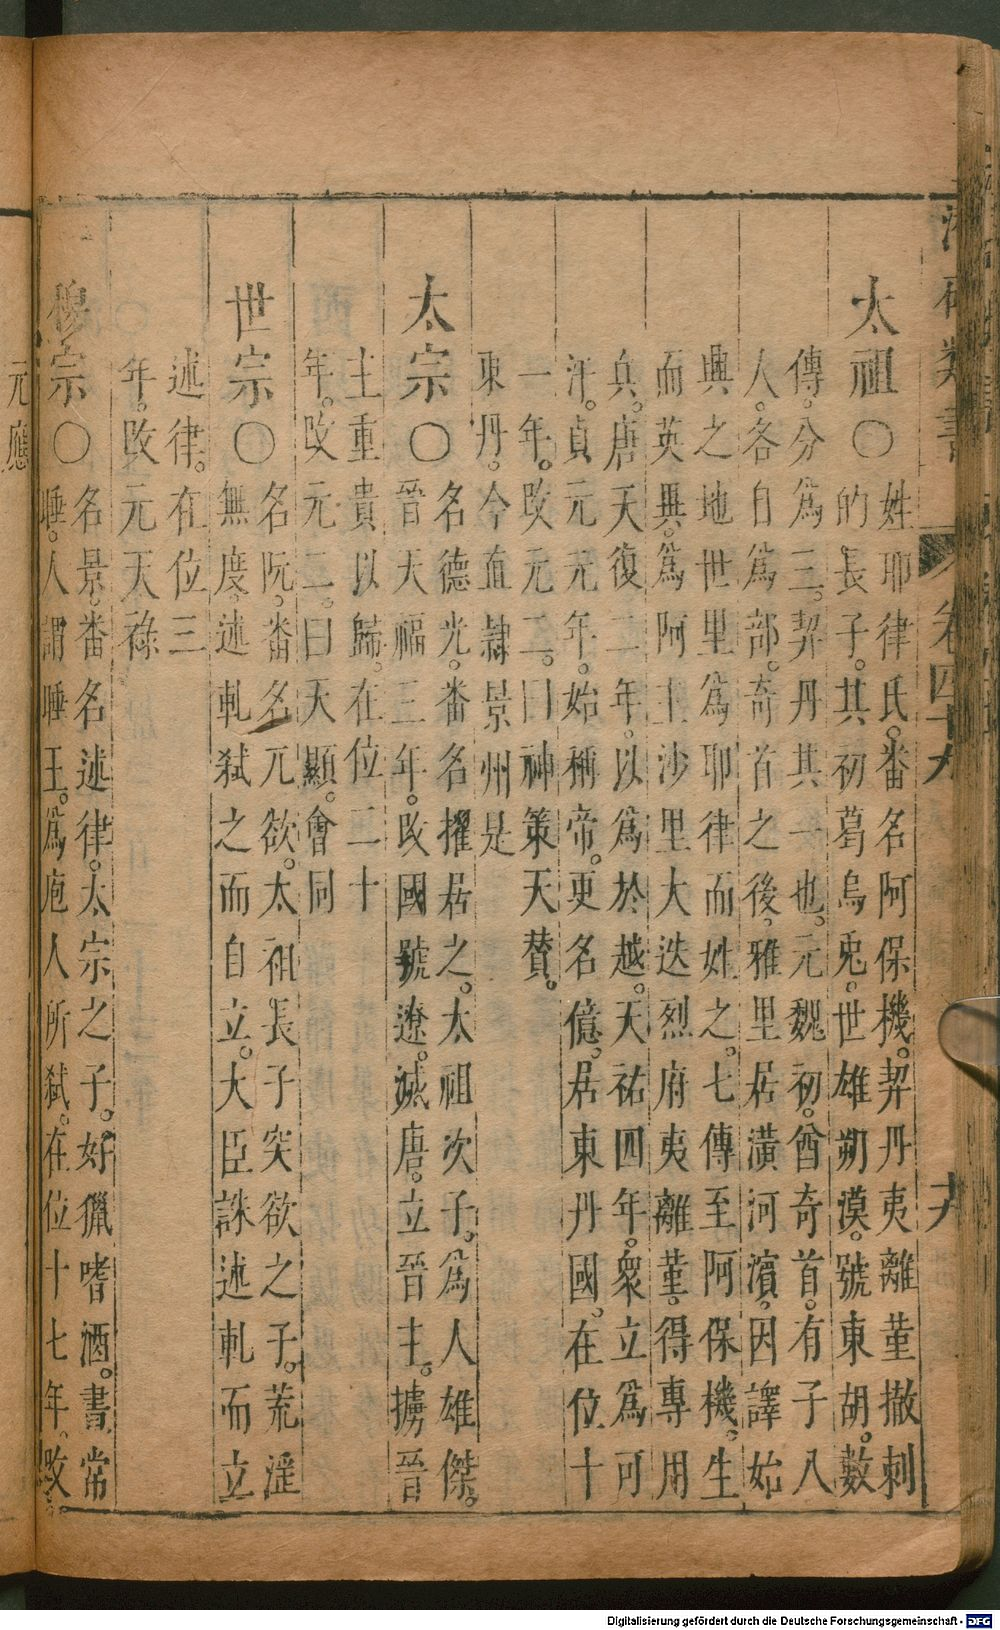 卷四十九
十九
太祖〇姓耶律氏。番名阿保機。契丹夷離堇撒剌
的長子。其初葛烏兎。世雄朔漠。號東胡。數
傳。分爲三。契丹其一也。元魏初。酋奇首。有子八
人。各自爲部。奇首之後。雅里居潢河濵。因譯始
興之地世里爲耶律而姓之。七傳至阿保機。生
而英異。爲阿主沙里大迭烈府夷離堇。得專用
兵。唐天復二年。以爲於越。天祐四年。衆立爲可
汗。貞元元年。始稱帝。更名億。居東丹國。在位十
一年。改元二。曰神策天賛。
東丹。今直隸景州是
太宗〇名德光。番名擢居之。太祖次子。爲人雄傑。
晉天福三年。改國號遼。滅唐。立晉主。擄晉
主重貴以歸。在位二十
年。改元二。曰天顯。會同
世宗〇名阮。番名兀欲。太祖長子突欲之子。荒淫
無度。述軋弑之而自立。大臣誅述軋而立
述律。在位三
年。改元天祿
穆宗〇名景。番名述律。太宗之子。好獵嗜酒。書常
睡。人謂睡王。爲庖人所弑。在位十七年。改
元應
Digitalisierung gefördert durch die Deutsche Forschungsgemeinschaft - DFG